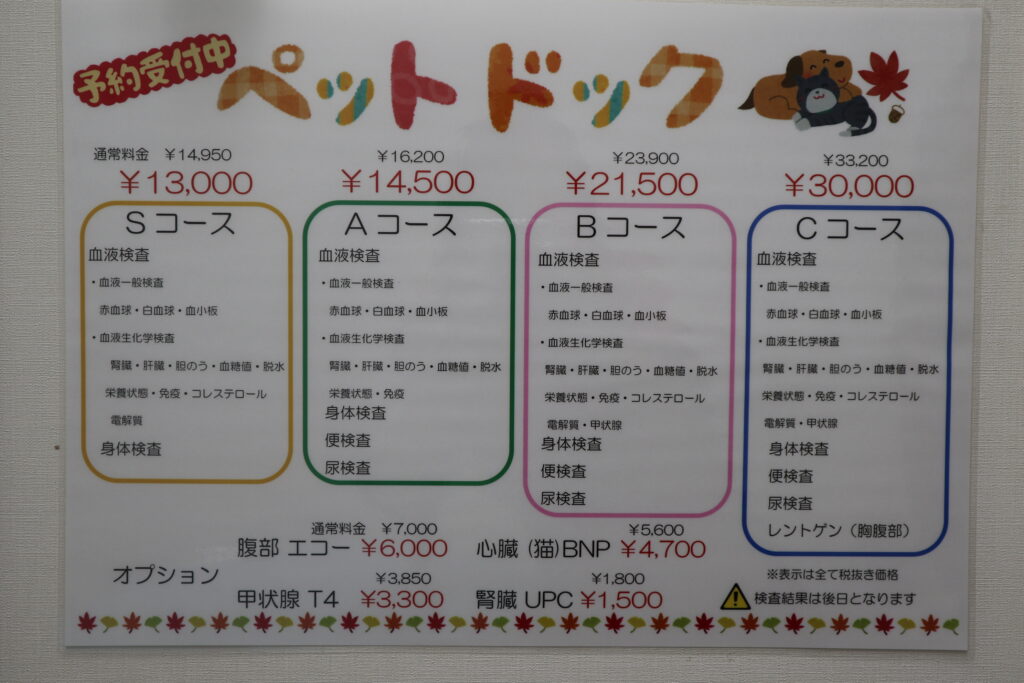 予約受付中
ペットドック
通常料金 ¥14,950
¥13,000
Sコース
血液検査
・血液一般検査
赤血球・白血球・血小板
・血液生化学検査
腎臓・肝臓・胆のう・血糖値・脱水
栄養状態・免疫・コレステロール
電解質
身体検査
¥16,200
¥14,500
Aコース
血液検査
・血液一般検査
赤血球・白血球・血小板
・血液生化学検査
腎臓・肝臓・胆のう・血糖値・脱水
栄養状態・免疫
身体検査
便検査
尿検査
¥23,900
¥21,500
Bコース
血液検査
・血液一般検査
赤血球・白血球・血小板
・血液生化学検査
腎臓・肝臓・胆のう・血糖値・脱水
栄養状態・免疫・コレステロール
電解質・甲状腺
身体検査
便検査
尿検査
¥33,200
¥30,000
Cコース
血液検査
・血液一般検査
赤血球・白血球・血小板
・血液生化学検査
腎臓・肝臓・胆のう・血糖値・脱水
栄養状態・免疫・コレステロール
電解質・甲状腺
身体検査
便検査
尿検査
レントゲン(胸腹部)
オプション
通常料金 ¥7,000
腹部 エコー ¥6,000
¥5,600
心臓 (猫)BNP ¥4,700
¥3,850
甲状腺 T4 ¥3,300
¥1,800
腎臓 UPC ¥1,500
※表示は全て税抜き価格
検査結果は後日となります